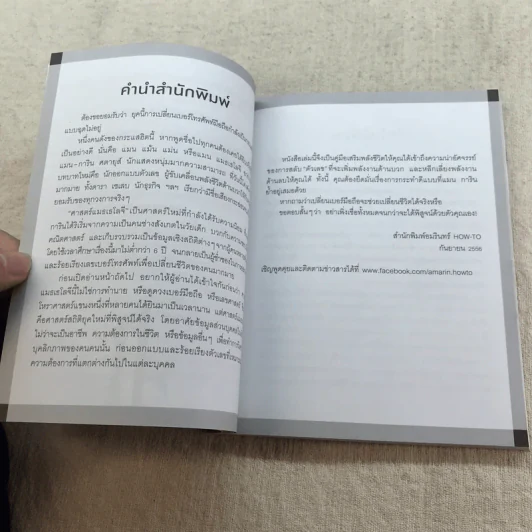 คำนำสำนักพิมพ์
ต้องขอยอมรับว่า ยุคนี้การเปลี่ยนเบอร์โทรศัพท์มือถือกำลังเป็น
แบบฉุดไม่อยู่
หนึ่งคนดังของกระแสฮิตนี้ หากพูดชื่อไปทุกคนต้อง
เป็นอย่างดี นั่นคือ แมน แม้น แม่น หรือแมน
แมน-การิน ศตายุส์ นักแสดงหนุ่มมากความสามารถ
บทบาทใหม่คือ นักออกแบบตัวเลข ผู้ขับเคลื่อนชีวิตด้าน
มากมาย ทั้งดารา เซเลบ นักธุรกิจ ฯลฯ เรียกว่ามีชื่อเสียง
ยอมรับของทุกวงการจริงๆ
"ศาสตร์แมธเอโลจี"เป็นศาสตร์ใหม่ที่กำลังได้รับความนิยม
การินได้ริเริ่มจากความเป็นคนช่างสังเกตในวัยเด็ก บวกกับความ
คณิตศาสตร์ และเก็บรวบรวมเป็นข้อมูลเชิงสถิติต่างๆ
โดยใช้เวลาศึกษาเรื่องนี้มาไม่ต่ำกว่า ๑ ปี จนกลายเป็นผู้
และร้อยเรียงเลขเบอร์โทรศัพท์เพื่อเปลี่ยนชีวิตของคนมากมาย
ก่อนเปิดอ่านหน้าถัดไป อยากให้ผู้อ่านได้เข้าใจกันก่อนว่า
แมธเอโลจีนี้ไม่ใช่การทำนาย หรือดูดวงเบอร์มือถือ หรือเลข
โหราศาสตร์แขนงหนึ่งที่หลายคนได้ยินมาเป็นเวลานาน แต่ศาสตร์
คือศาสตร์สถิติยุคใหม่ที่พิสูจน์ได้จริง โดยอาศัยข้อมูลส่วนบุคคล
ไม่ว่าจะเป็นอาชีพ ความต้องการในชีวิต หรือข้อมูลอื่นๆ เพื่อ
บุคลิกภาพของคนคนนั้น ก่อนออกแบบและร้อยเรียงตัวเลข
ความต้องการที่แตกต่างกันไปในแต่ละบุคคล
หนังสือเล่มนี้จึงเป็นคู่มือเสริมพลังชีวิตให้คุณได้เข้าถึงความน่าอัศจรรย์
ของการสลับ "ตัวเลข"ที่จะเพิ่มพลังงานด้านบวก และหลีกเลี่ยงพลังงาน
ด้านลบให้คุณได้ ทั้งนี้ คุณต้องยึดมั่นเรื่องการกระทำดีแบบที่แมน การิน
ย้ำอยู่เสมอด้วย
หากถามว่าเปลี่ยนเบอร์มือถือจะช่วยเปลี่ยนชีวิตได้จริงหรือ
ขอตอบสั้นๆว่า อย่าเพิ่งเชื่อทั้งหมดจนกว่าจะได้พิสูจน์ด้วยตัวคุณเอง!
สำนักพิมพ์อมรินทร์ HOW-TO
กันยายน 2556
เชิญพูดคุยและติดตามข่าวสารได้ที่ www.facebook.com/amarin.howto